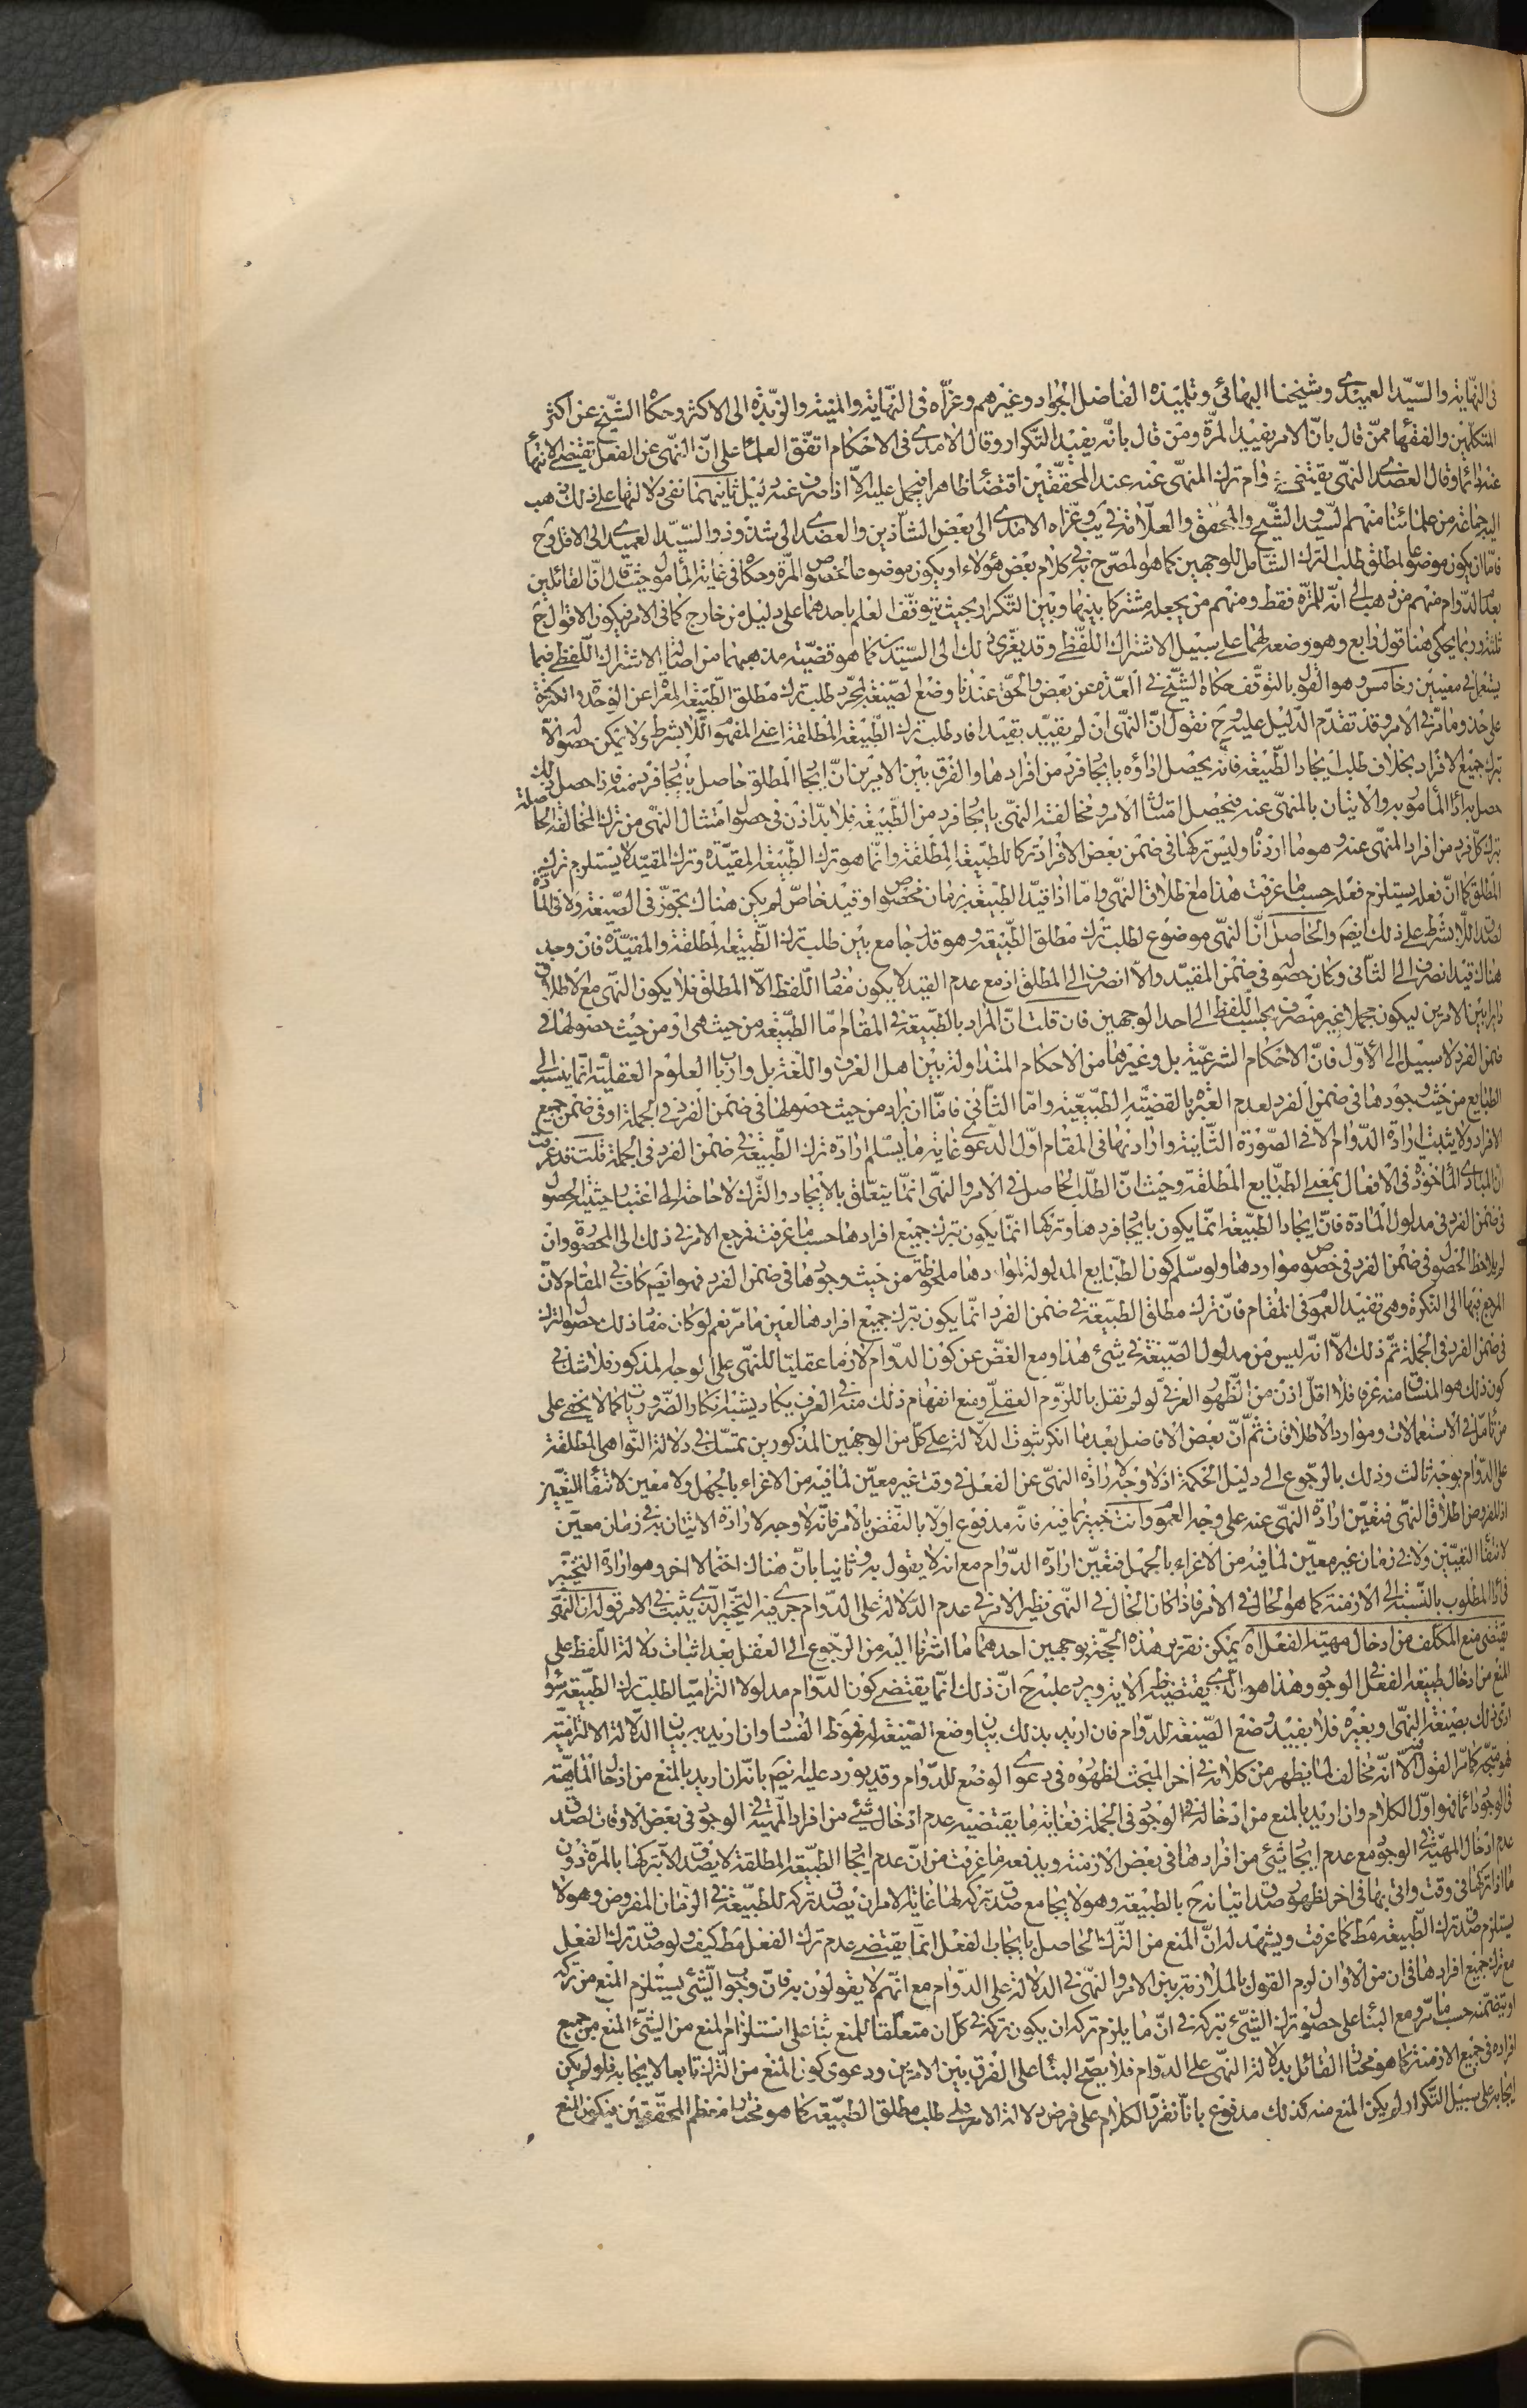 فى النّهاية والسّيّد العميدى وشيخنا البهائى وتلميذه الفاضل الجواد وغيرهم وعزاه فى النهاية والمنية والزبدة الى الاكثر وحكاه الشّيخ عن اكثر
المتكلمين والفقهاء ممّن قال بانّ الامر يفيد المرّة ومن قال بانّه يفيد التكرار وقال الامدى فى الاحكام اتفق العلماء على انّ النّهى عن الفعل يقتضى الانتهاء
عنه دائما وقال العضدى النّهى يقتضى دوام ترك المنهى عنه عند المحققين اقتضاء ظاهرا فيحمل عليه الّا اذا صرف عنه دليل ثانيهما نفى دلالتها على ذلك ذهب
اليه جماعة من علمائنا منهم السيد والشّيخ والمحقق والعلّامة فى يب وعزاه الامدى الى بعض الشاذين والعضدى الى شذوذ والسّيّد العميدى الى الاقل وح
فامّا ان يكون موضوعا لمطلق طلب الترك الشامل للوجهين كما هو المصرّح به فى كلام بعض هؤلاء او يكون موضوعا لخصوص المرّة وحكاه فى غاية المأمول حيث قال انّ القائلين
بعدم الدّوام منهم من ذهب الى انّه للمرّة فقط ومنهم من يجعله مشتركا بينها وبين التكرار بحيث يتوقف العلم باحدهما على دليل من خارج كما فى الامر فيكون الاقوال ح
ثلثة وربما يحكى هنا قول رابع وهو وضعه لهما على سبيل الاشتراك اللفظى وقد يعزى ذلك الى السّيّد كما هو قضيّة مذهبهما من اصالة الاشتراك اللفظى فيما
يستعمل فى معنيين وخامس وهو القول بالتوقف حكاه الشّيخ فى العدّة عن بعض والحق عندنا وضع الصيغة لمجرّد طلب ترك مطلق الطّبيعة المعراة عن الوحدة والكثرة
على حذو ما مرّ فى الامر وقد تقدّم الدّليل عليه وح نقول انّ النّهى ان لم يقيّد بقيد افاد طلب ترك الطّبيعة المطلقة اعنى المفهوم اللّابشرط ولا يمكن حصوله الّا
بترك جميع الافراد بخلاف طلب ايجاد الطّبيعة فانّه يحصل اداؤه بايجاد فرد من افرادها والفرق بين الامرين انّ ايجاد المطلق حاصل بايجاد فرد منه فاذا حصل ذلك
حصل به اداء المأمور به والاتيان بالمنهى عنه فيحصل امتثال الامر ومخالفة النّهى بايجاد فرد من الطّبيعة فلا بدّ اذن فى حصول امتثال النّهى من ترك المخالفة الحاصلة
بترك كلّ فرد من افراد المنهى عنه وهو ما اردنا وليس تركها فى ضمن بعض الافراد تركا للطبيعة المطلقة وانّما هو ترك الطّبيعة المقيّدة وترك المقيّد لا يستلزم ترك
المطلق كما انّ فعله يستلزم فعله حسبما عرفت هذا مع اطلاق النّهى وامّا اذا قيّد الطّبيعة بزمان مخصوص او قيد خاصّ لم يكن هناك تجوّز فى الصيغة ولا فى المادة
لصدق اللّابشرط على ذلك ايضا والحاصل انّ النّهى موضوع لطلب ترك مطلق الطّبيعة وهو قدر جامع بين طلب ترك الطّبيعة المطلقة والمقيّدة فان وجد
هناك قيد انصرف الى الثانى وكان حصوله فى ضمن المقيّد والّا انصرف الى المطلق اذ مع عدم القيد لا يكون مفاد اللّفظ الّا المطلق فلا يكون النّهى مع الاطلاق
دائرا بين الامرين ليكون مجملا غير منصرف بحسب اللّفظ الى احد الوجهين فان قلت انّ المراد بالطّبيعة فى المقام امّا الطّبيعة من حيث هى او من حيث حصولها فى
ضمن الفرد لا سبيل الى الأوّل فانّ الاحكام الشرعيّة بل وغيرها من الاحكام المتداولة بين اهل العرف واللّغة بل وارباب العلوم العقليّة انّما ينسب الى
الطبايع من حيث وجودها فى ضمن الفرد لعدم العبرة بالقضيّة الطبيعيّة وامّا الثّانى فامّا ان يراد من حيث حصولها فى ضمن الفرد فى الجملة او فى ضمن جميع
الافراد ولا يثبت ارادة الدّوام الّا فى الصّورة الثّانية وارادتها فى المقام اوّل الدّعوى غاية ما يسلم ارادة ترك الطّبيعة فى ضمن الفرد فى الجملة قلت قد عرفت
انّ المبادى المأخوذة فى الافعال بمعنى الطبايع المطلقة وحيث انّ الطّلب الحاصل فى الامر والنّهى انّما يتعلّق بالايجاد والترك لا حاجة الى اعتبار حيثيّة الحصول
فى ضمن الفرد فى مدلول المادة فانّ ايجاد الطّبيعة انّما يكون بايجاد فردها وتركها انّما يكون بترك جميع افرادها حسبما عرفت فمرجع الامر فى ذلك الى المحصورة وان
لم يلاحظ الحصول فى ضمن الفرد فى خصوص مواردها ولو سلّم كون الطبايع المدلولة لموادها ملحوظة من حيث وجودها فى ضمن الفرد فهو ايضا كاف فى المقام لانّ
المرجع فيها الى النكرة وهى تفيد العموم فى المقام فانّ ترك مطلق الطّبيعة فى ضمن الفرد انّما يكون بترك جميع افرادها لعين ما مرّ نعم لو كان مفاد ذلك حصول الترك
فى ضمن الفرد فى الجملة تمّ ذلك الّا انّه ليس من مدلول الصّيغة فى شىء هذا ومع الغضّ عن كون الدّوام لازما عقليّا للنّهى على الوجه المذكور فلا شك فى
كون ذلك هو المنساق منه عرفا فلا اقلّ اذن من الظهور العرفى لو لم نقل باللّزوم العقلى ومنع انفهام ذلك منه فى العرف يكاد يشبه انكار الضّروريات كما لا يخفى على
من تأمّل فى الاستعمالات وموارد الاطلاقات ثمّ انّ بعض الافاضل بعد ما انكر ثبوت الدّلالة على كلّ من الوجهين المذكورين تمسّك فى دلالة النّواهى المطلقة
على الدّوام بوجه ثالث وذلك بالرّجوع الى دليل الحكمة اذ لا وجه لارادة النّهى عن الفعل فى وقت غير معيّن لما فيه من الاغراء بالجهل ولا معيّن لانتفاء التّعيين
اذ المفروض اطلاق النّهى فتعيّن ارادة النّهى عنه على وجه العموم وانت خبير بما فيه فانّه مدفوع اوّلا بالنقض بالامر فانّه لا وجه لارادة الاتيان به فى زمان معيّن
لانتفاء التعيين ولا فى زمان غير معيّن لما فيه من الاغراء بالجهل فتعيّن ارادة الدّوام مع انّه لا يقول به وثانيا بانّ هناك احتمالا اخر وهو ارادة التخيير
فى اداء المطلوب بالنّسبة الى الازمنة كما هو الحال فى الامر فاذا كان الحال فى النّهى نظير الامر فى عدم الدّلالة على الدّوام جرى فيه التخيير الّذى يثبت فى الامر قوله انّ النّهى
يقتضى منع المكلّف من ادخال مهيّة الفعل اه يمكن تقرير هذه الحجّة بوجهين احدهما ما اشرنا اليه من الرّجوع الى العقل بعد اثبات دلالة اللّفظ على
المنع من ادخال طبيعة الفعل فى الوجود وهذا هو الّذى يقتضيه ظاهر الايراد ويرد عليه ح انّ ذلك انّما يقتضى كون الدّوام مدلولا التزاميّا لطلب ترك الطّبيعة سواء
ادى ذلك بصيغة النّهى او بغيره فلا يفيد وضع الصّيغة للدّوام فان اريد بذلك بيان وضع الصّيغة له فهو ظاهر الفساد وان اريد به بيان الدّلالة الالتزاميّة
فهو متّجه كما مرّ القول فيه الّا انّه مخالف لما يظهر من كلامه فى آخر المبحث لظهوره فى دعوى الوضع للدّوام وقد يورد عليه ايضا بانّه ان اريد بالمنع من ادخال المهيّة
فى الوجود دائما فهو اوّل الكلام وان اريد بالمنع من ادخاله فى الوجود فى الجملة فغاية ما يقتضيه عدم ادخال شىء من افراد المهيّة فى الوجود فى بعض الاوقات لصدق
عدم ادخال المهيّة فى الوجود مع عدم ايجاد شىء من افرادها فى بعض الازمنة ويدفعه ما عرفت من انّ عدم ايجاد الطّبيعة المطلقة لا يصدق الا بتركها بالمرّة دون
ما اذا تركها فى وقت واتى بها فى اخر لظهور صدق اتيانه ح بالطبيعة وهو لا يجامع صدق تركه لها غاية الامر ان يصدق تركه للطّبيعة فى الزمان المفروض وهو لا
يستلزم صدق ترك الطّبيعة مط كما عرفت ويشهد له انّ المنع من التّرك الحاصل بايجاب الفعل انّما يقتضى عدم ترك الفعل مط كيف ولو صدق ترك الفعل
مع ترك جميع افرادها فى ان من الاوان لزم القول بالملازمة بين الامر والنّهى فى الدّلالة على الدّوام مع انّهم لا يقولون به فانّ وجوب الشّىء يستلزم المنع من تركه
او يتضمّنه حسبما مرّ ومع البناء على حصول ترك الشّىء بتركه فى انّ ما يلزم تركه ان يكون تركه فى كلّ ان متعلّقا للمنع بناء على استلزام المنع من الشّىء المنع من جميع
افراده فى جميع الازمنة كما هو مختار القائل بدلالة النّهى على الدّوام فلا يصحّ البناء على الفرق بين الامرين ودعوى كون المنع من الترك تابعا لايجابه فلو لم يكن
ايجابه على سبيل التكرار لم يكن المنع منه كذلك مدفوع بانّا نقرّر الكلام على فرض دلالة الامر على طلب مطلق الطّبيعة كما هو مختار معظم المحققين فيكون المنع